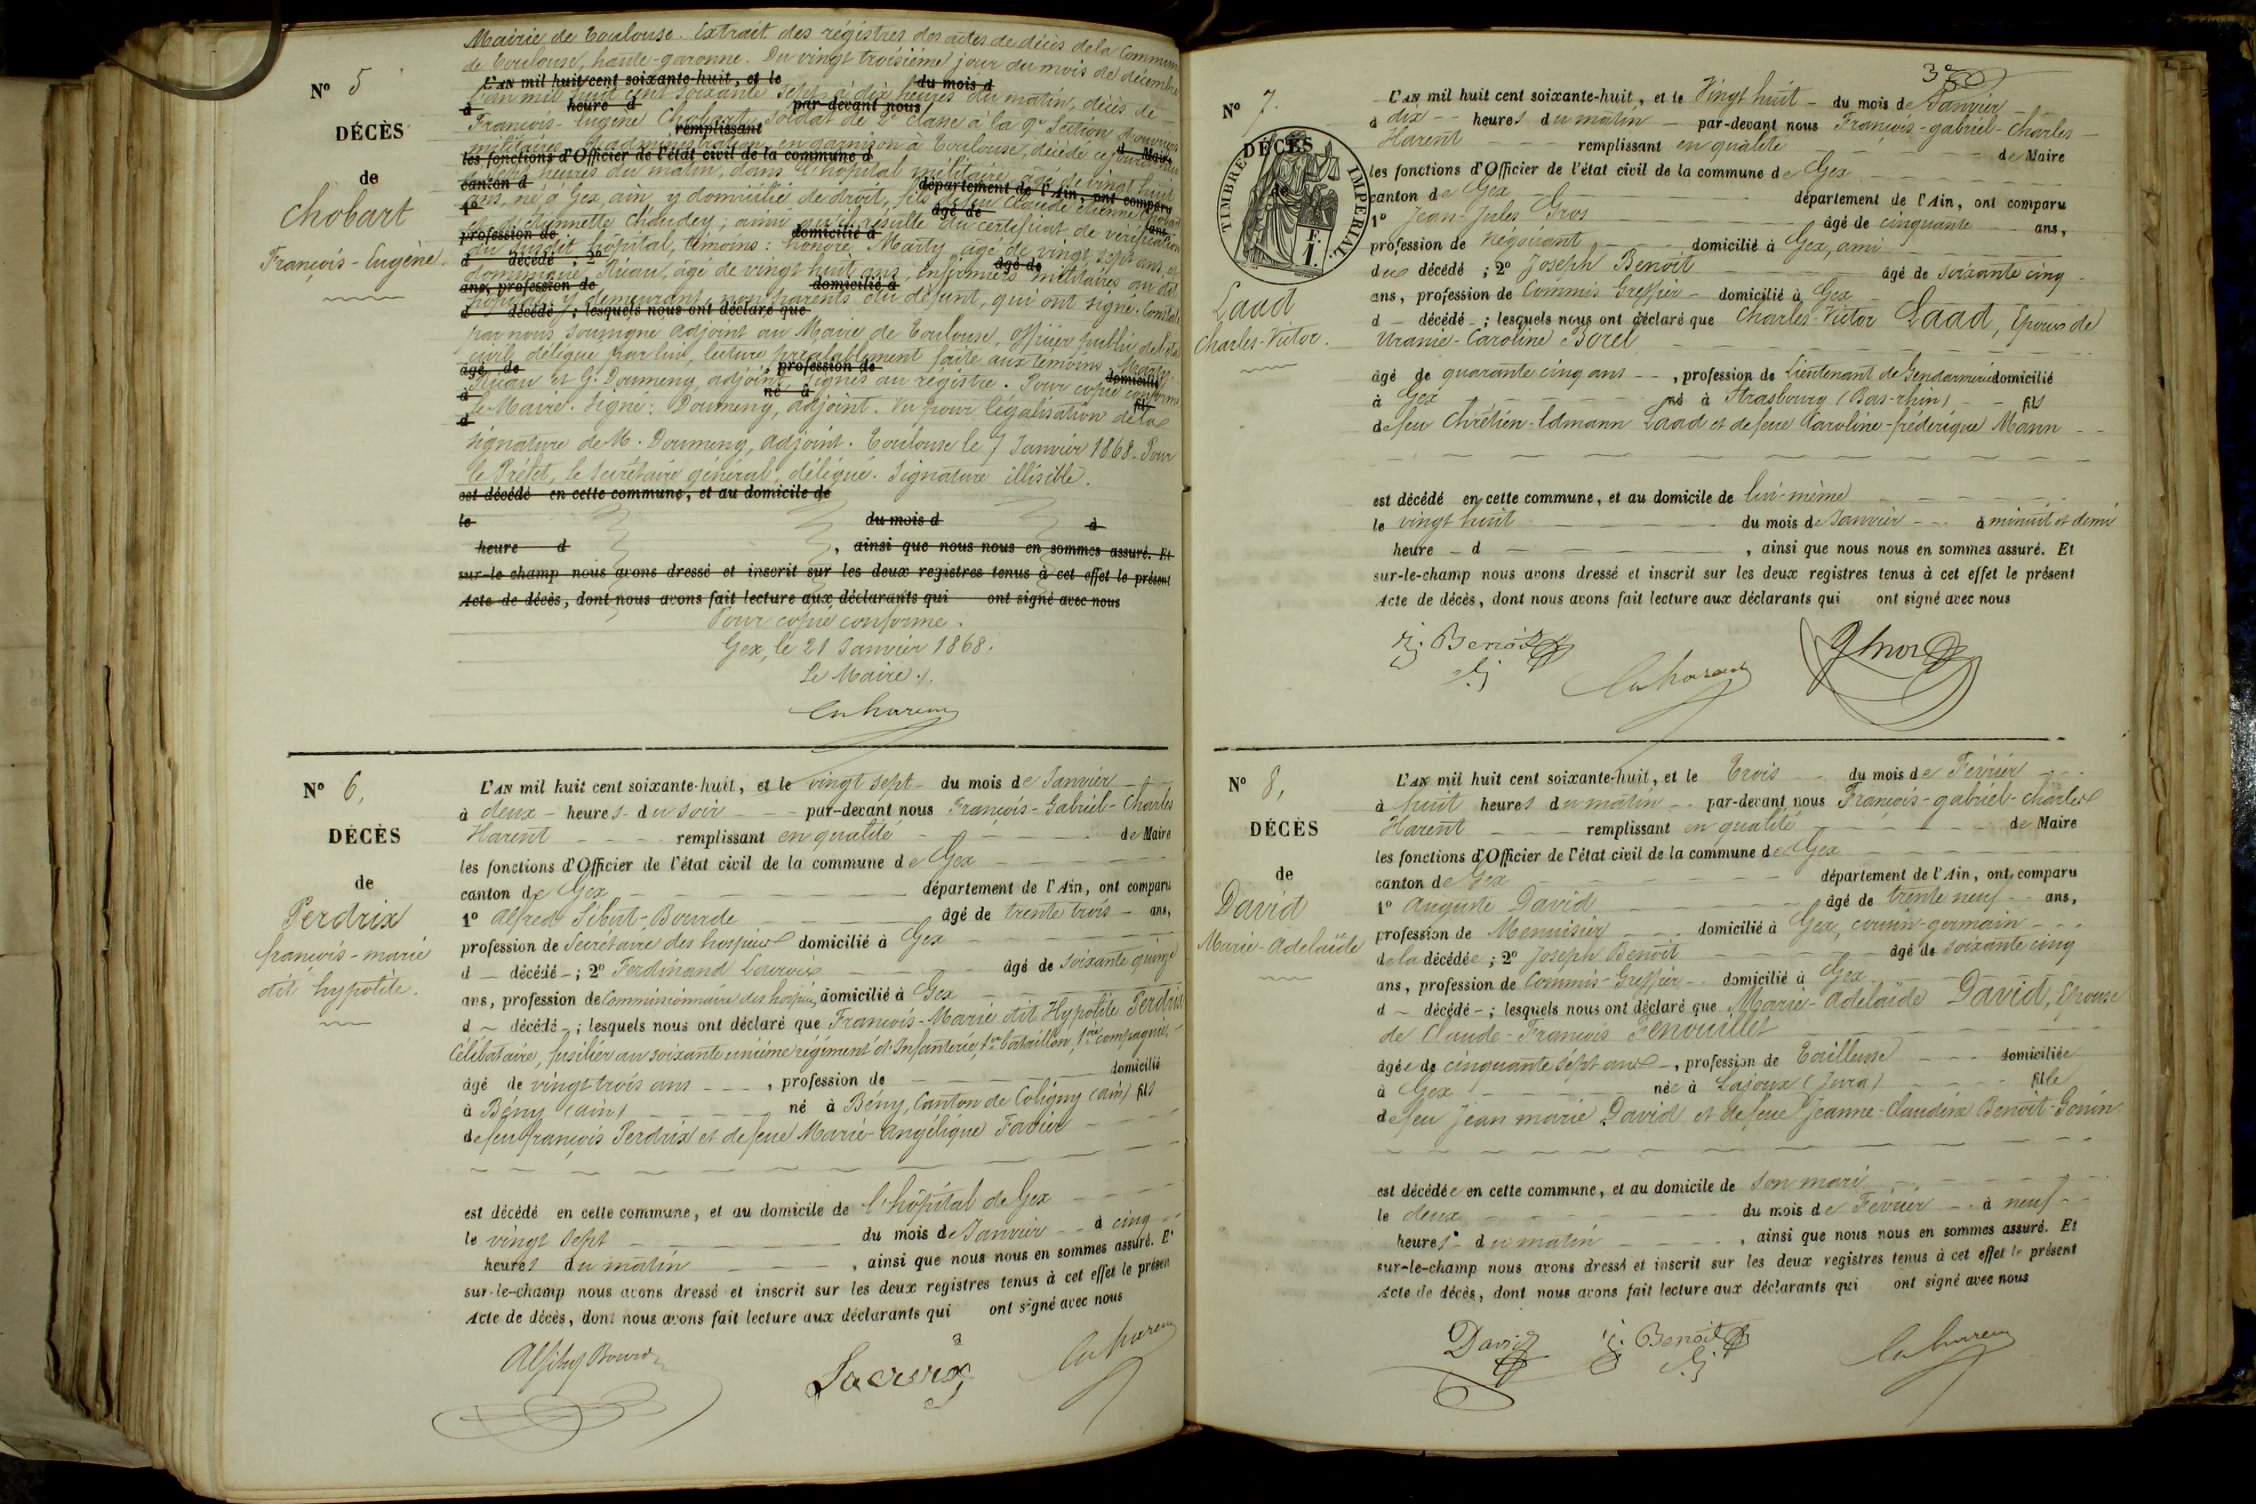 Nº 5
DÉCÈS
de
Chobart
François-Eugène.
Mairie de Toulouse. Extrait des régistres des actes de décès de la Commune
de Toulouse, haute-garonne. Du vingt troisième jour du mois de décembre
L'AN mil huit cent soixante-huit, et le du mois d
l'an mil huit cent soixante sept, à dix heures du matin, décès de
à heure d par-devant nous
François-Eugène Chobart, soldat de 2e classe à la 9e Section d'ouvriers
remplissant
militaires d'administration en garnison à Toulouse, décédé ce jour
les fonctions d'Officier de l'état civil de la commune d
à sept heures du matin, dans l'hôpital militaire, agé de vingt huit
canton d département de l'Ain, ont comparu
ans, né à Gex, ain, y domicilié de droit, fils de feu Claude Etienne Chobart
1º âgé de ans,
et de Jennette Chaudey; ainsi qu'il résulte du certificat de vérification
profession de domicilié à
du susdit hôpital, témoins: honoré Marty agé de vingt sept ans, et
d décédé; 2º âgé de
dominique Ruau, âgé de vingt huit ans, infirmiers militaires au dit
ans, profession de domicilié à
hôpital y demeurant, non parents du défunt, qui ont signé. Constaté
d décédé; lesquels nous ont déclaré que
par nous soussigné adjoint au Maire de Toulouse, officier public de l'état
civil, délégué par lui, lecture préalablement faite aux témoins, Marty
âgé de profession de domicilié
Ruau et G. Doumeng, adjoint, signés au régistre. Pour copie conforme
à né à fils
le Maire. signé: Doumeng, adjoint. Vu pour légalisation de la
d
signature de M. Doumeng, adjoint. Toulouse le 7 Janvier 1868. Pour
le Préfet, le secrétaire général, délégué. Signature illisible.
est décédé en cette commune, et au domicile de
le du mois d à
heure d , ainsi que nous nous en sommes assuré. Et
sur-le-champ nous avons dressé et inscrit sur les deux registres tenus à cet effet le présent
Acte de décès, dont nous avons fait lecture aux déclarants qui ont signé avec nous
Pour copie conforme.
Gex, le 21 Janvier 1868.
Le Maire.
Ch harent
Nº 6,
DÉCÈS
de
Perdrix
françois-marie
dit hypolite.
L'AN mil huit cent soixante-huit, et le vingt sept du mois de Janvier
à deux heures du soir par-devant nous François-Gabriel-Charles
Harent remplissant en qualité de Maire
les fonctions d'Officier de l'état civil de la commune de Gex
canton de Gex département de l'Ain, ont comparu
1º alfred Sibut-Bourde âgé de trente trois ans,
profession de Secrétaire des hospices domicilié à Gex
d décédé; 2º Ferdinand Lacroix âgé de soixante quinze
ans, profession de Commissionnaire des hospices domicilié à Gex
d décédé; lesquels nous ont déclaré que François-Marie dit Hypolite Perdrix
Célibataire, fusilier au soixante unième régiment d'Infanterie, 1er bataillon, 1ère compagnie,
âgé de vingt trois ans , profession de domicilié
à Bény (ain) né à Bény, Canton de Coligny (ain) fils
de feu françois Perdrix et de feue Marie-angélique Favier
est décédé en cette commune, et au domicile de l'hôpital de Gex
le vingt sept du mois de Janvier à cinq
heures du matin , ainsi que nous nous en sommes assuré. Et
sur-le-champ nous avons dressé et inscrit sur les deux registres tenus à cet effet le présent
Acte de décès, dont nous avons fait lecture aux déclarants qui ont signé avec nous
A Sibut Bourde Lacroix Ch harent
3e
Nº 7.
DÉCÈS
de
TIMBRE IMPERIAL
F.
1.
Laad
Charles-Victor.
L'AN mil huit cent soixante-huit, et le Vingt huit du mois de Janvier
à dix heures du matin par-devant nous François-gabriel-charles
Harent remplissant en qualité de Maire
les fonctions d'Officier de l'état civil de la commune de Gex
canton de Gex département de l'Ain, ont comparu
1º Jean-Jules Gros âgé de cinquante ans,
profession de négociant domicilié à Gex, ami
du décédé; 2º Joseph Benoît âgé de soixante cinq
ans, profession de Commis Greffier domicilié à Gex
d décédé; lesquels nous ont déclaré que Charles-Victor Laad, Epoux de
Uranie-Caroline Borel
âgé de quarante cinq ans , profession de Lieutenant de Gendarmerie domicilié
à Gex né à Strasbourg (Bas-rhin) fils
de feu Chrétien-Edmann Laad et de feue Caroline-frédérique Mann
est décédé en cette commune, et au domicile de lui-même
le vingt huit du mois de Janvier à minuit et demi
heure d , ainsi que nous nous en sommes assuré. Et
sur-le-champ nous avons dressé et inscrit sur les deux registres tenus à cet effet le présent
Acte de décès, dont nous avons fait lecture aux déclarants qui ont signé avec nous
j. Benoît Ch harent
Nº 8,
DÉCÈS
de
David
Marie-adelaïde
L'AN mil huit cent soixante-huit, et le Trois du mois de Février
à huit heures du matin par-devant nous François-gabriel-charles
Harent remplissant en qualité de Maire
les fonctions d'Officier de l'état civil de la commune de Gex
canton de Gex département de l'Ain, ont comparu
1º Auguste David âgé de trente neuf ans,
profession de Menuisier domicilié à Gex, cousin-germain
de la décédée; 2º Joseph Benoît âgé de soixante cinq
ans, profession de Commis-Greffier domicilié à Gex
d décédé; lesquels nous ont déclaré que Marie-adelaïde David, Epouse
de Claude-François Fenouillet
âgée de cinquante sept ans , profession de Tailleuse domiciliée
à Gex née à Lajoux (Jura) fille
de feu Jean marie David et de feue Jeanne-Claudine Benoît-Gonin
est décédée en cette commune, et au domicile de son mari
le deux du mois de Février à neuf
heures du matin , ainsi que nous nous en sommes assuré. Et
sur-le-champ nous avons dressé et inscrit sur les deux registres tenus à cet effet le présent
Acte de décès, dont nous avons fait lecture aux déclarants qui ont signé avec nous
David j. Benoît Ch harent